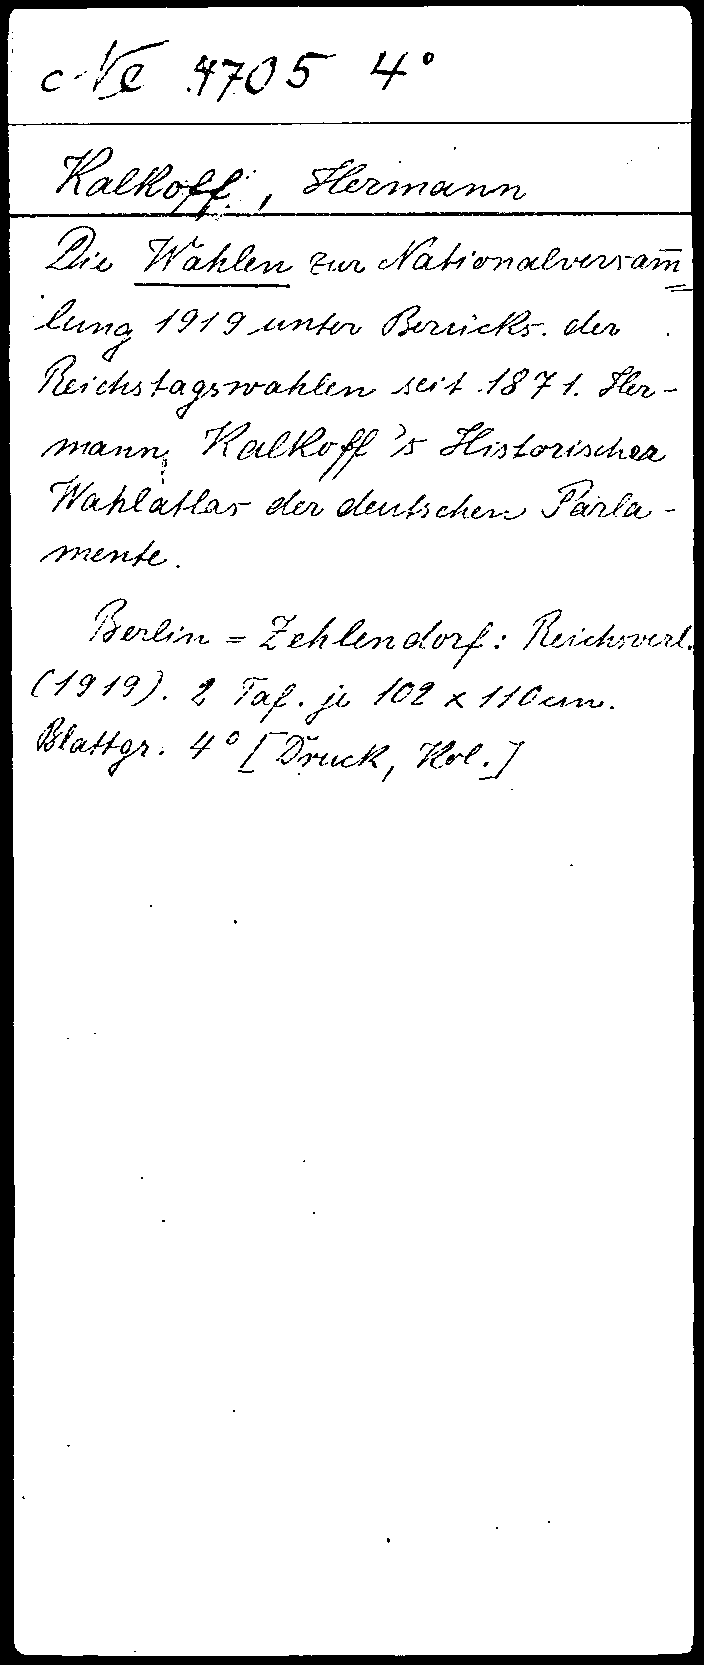 Ne 4705 4°
Kalkoff, Hermann
Die Wahlen zur Nationalversam̅=
lung 1919 unter Berücks. der
Reichstagswahlen seit 1871. Her-
mann Kalkoff's Historischer
Wahlatlas der deutschen Parla-
mente.
Berlin=Zehlendorf: Reichsverl.
(1919). 2 Taf. je 102 x 110 cm.
Blattgr. 4° [Druck, Kol.]